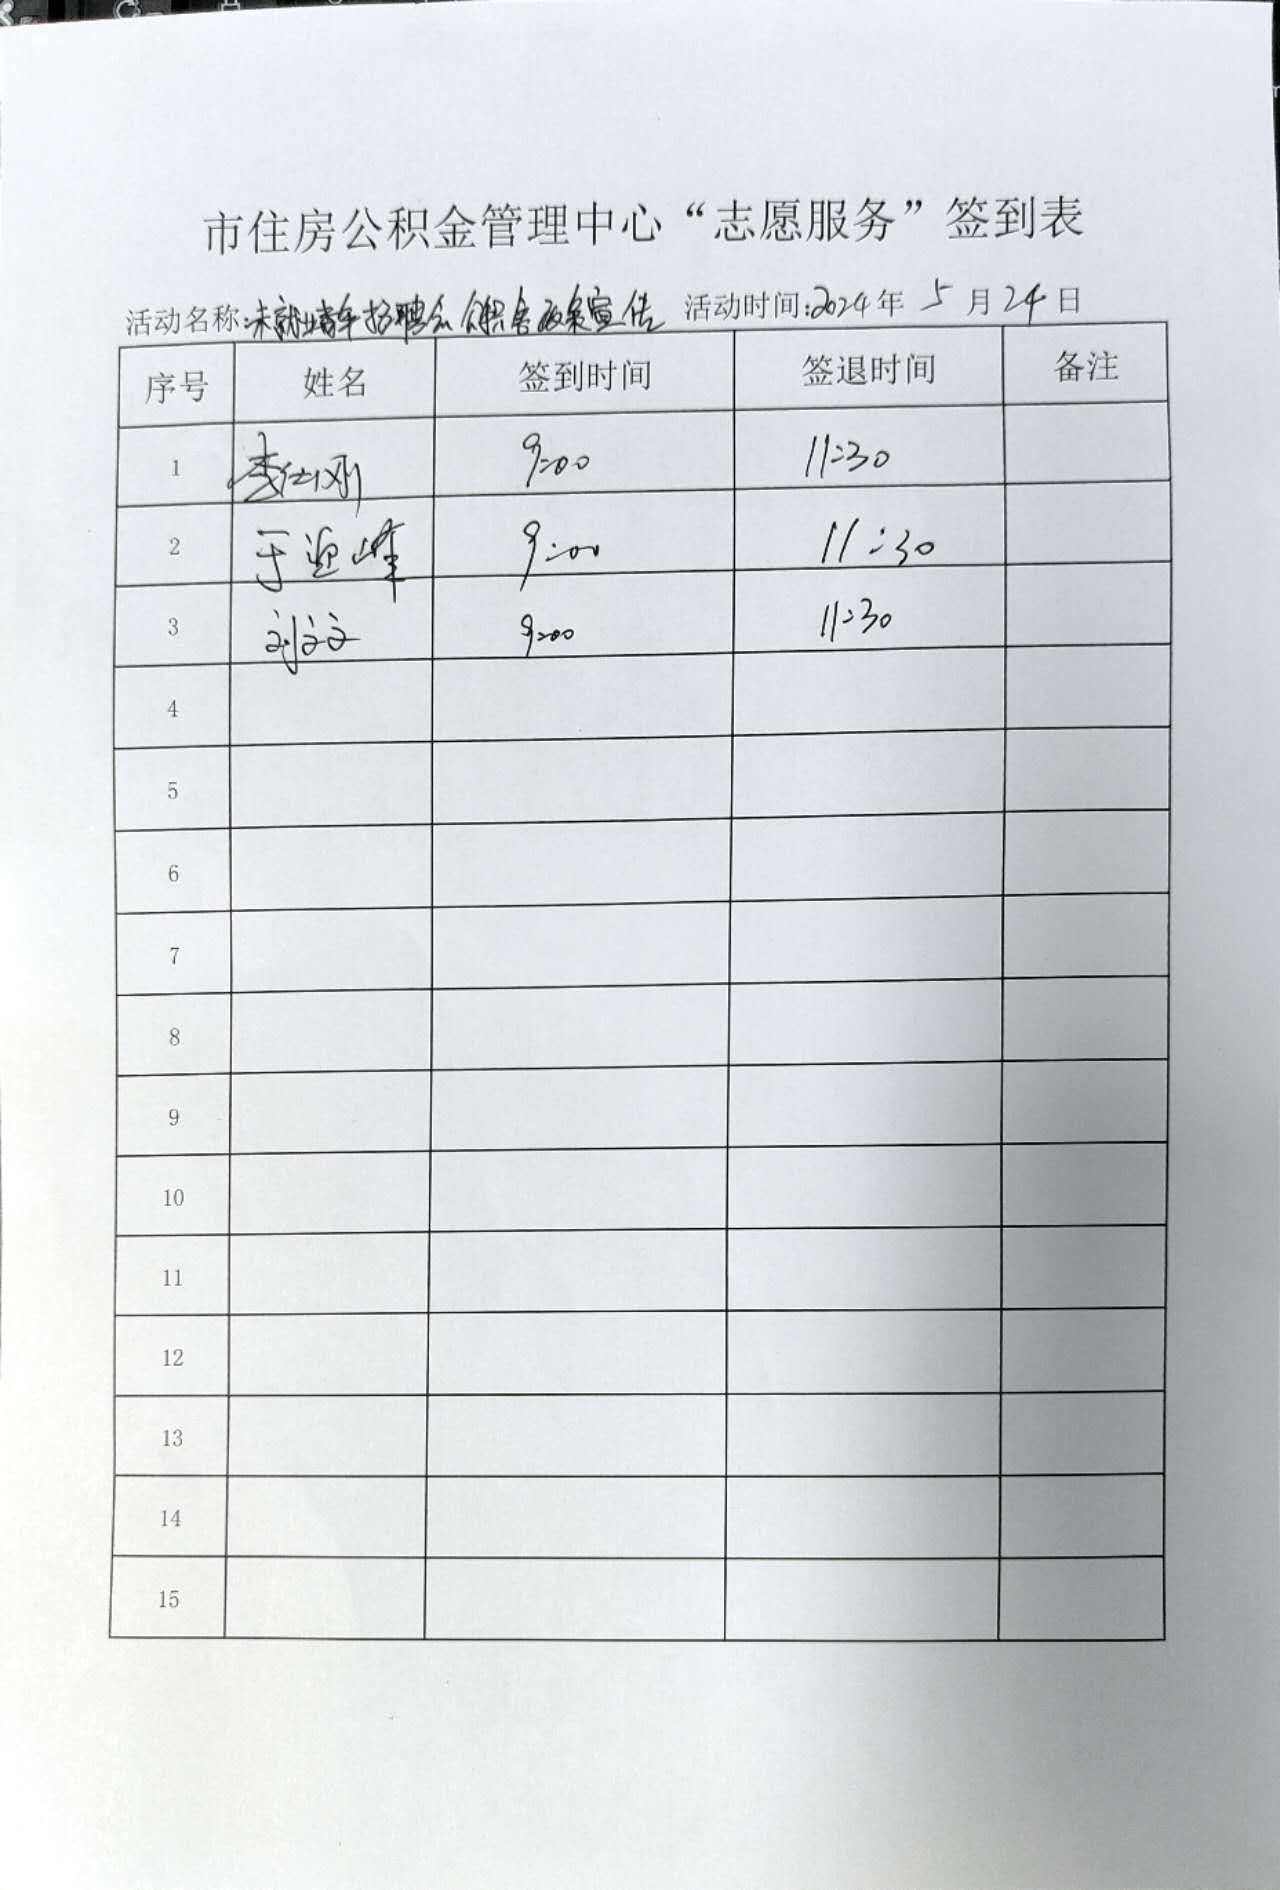 市住房公积金管理中心“志愿服务”签到表
活动名称:未就业青年招聘会公积金政策宣传 活动时间:2024年 5 月 24 日
序号 姓名 签到时间 签退时间 备注
1 李仕刚 9:00 11:30
2 于迎峰 9:00 11:30
3 刘文文 9:00 11:30
4
5
6
7
8
9
10
11
12
13
14
15